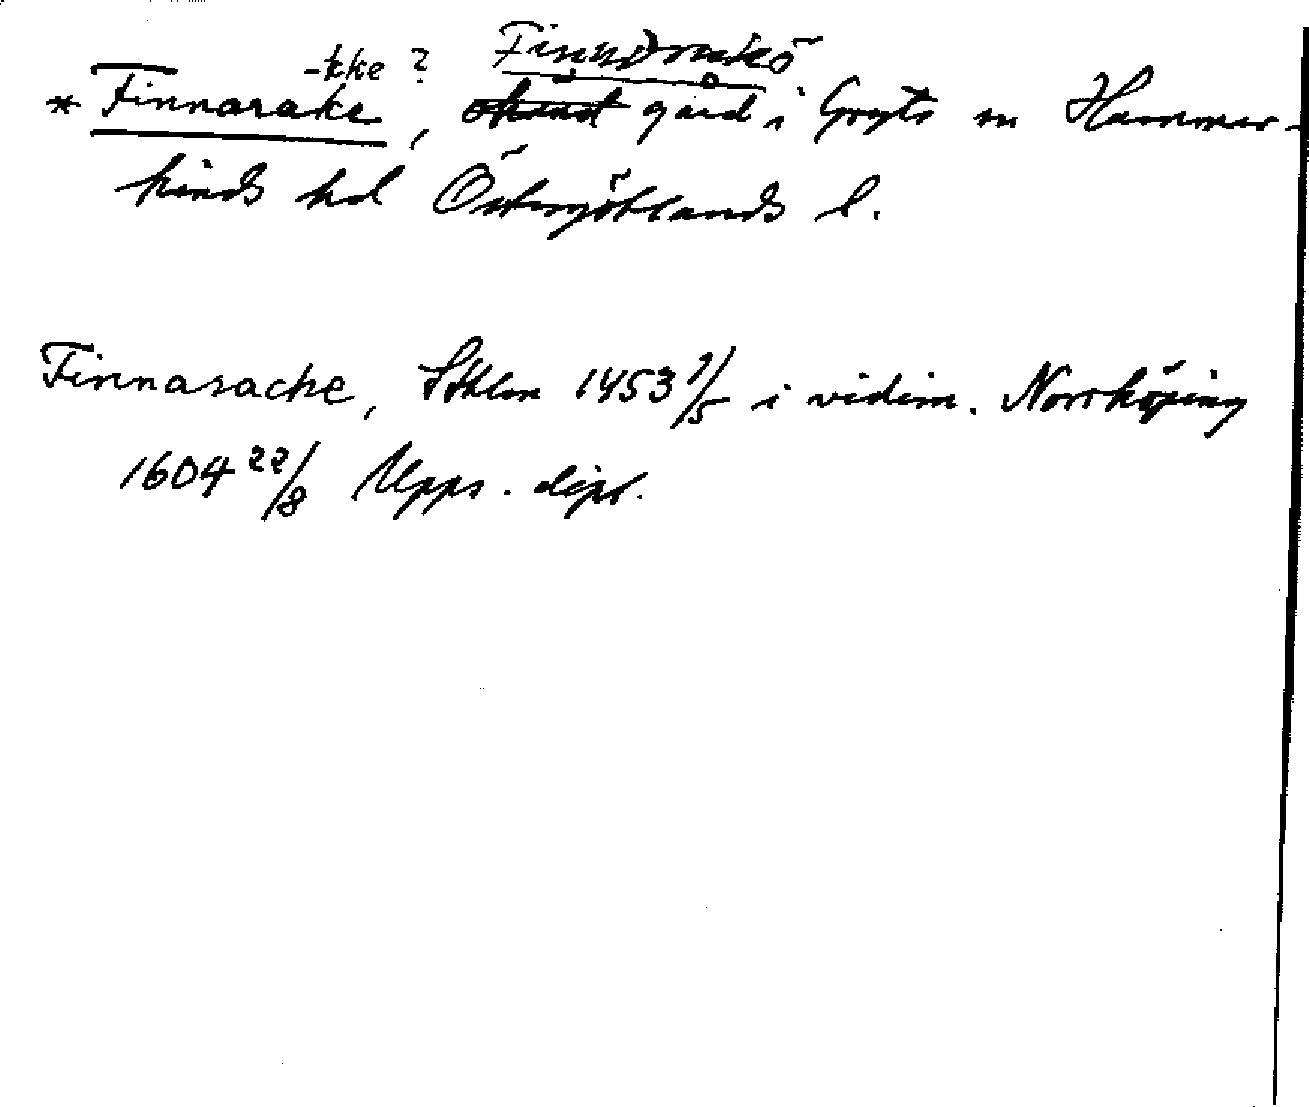 -kke ? Finnbrukö
* Finnarake, okänd gård i Gryts sn Hammar-
kinds hd Östergötlands l.
Finnarache, Sthlm 1453 9/5 i vidim. Norrköping
1604 22/8 Upps. dipl.